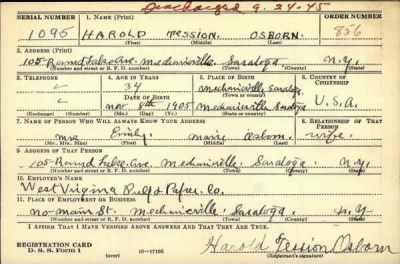 Discharged 9-24-45
SERIAL NUMBER 1. NAME (Print) ORDER NUMBER
1095 HAROLD FESSION. OSBORN. 856
(First) (Middle) (Last)
2. ADDRESS (Print)
105 Round Lake Ave. Mechanicville. Saratoga N.Y.
(Number and street or R. F. D. number) (Town) (County) (State)
3. TELEPHONE 4. AGE IN YEARS 5. PLACE OF BIRTH 6. COUNTRY OF CITIZENSHIP
34 Mechanicville Saratoga
DATE OF BIRTH (Town or county)
Nov 8th 1905 Mechanicville Saratoga U.S.A.
(Exchange) (Number) (Mo.) (Day) (Yr.) (State or country)
7. NAME OF PERSON WHO WILL ALWAYS KNOW YOUR ADDRESS 8. RELATIONSHIP OF THAT PERSON
Mrs Emily Marie Osborn wife.
(Mr., Mrs., Miss) (First) (Middle) (Last)
9. ADDRESS OF THAT PERSON
105 Round Lake Ave. Mechanicville. Saratoga. N.Y.
(Number and street or R. F. D. number) (Town) (County) (State)
10. EMPLOYER'S NAME
West Virginia Pulp & Paper. Co.
11. PLACE OF EMPLOYMENT OR BUSINESS
No-Main St. Mechanicville. Saratoga N.Y
(Number and street or R. F. D. number) (Town) (County) (State)
I AFFIRM THAT I HAVE VERIFIED ABOVE ANSWERS AND THAT THEY ARE TRUE.
REGISTRATION CARD
D. S. S. Form 1 (over) 16-17105
Harold Fession Osborn
(Registrant's signature)